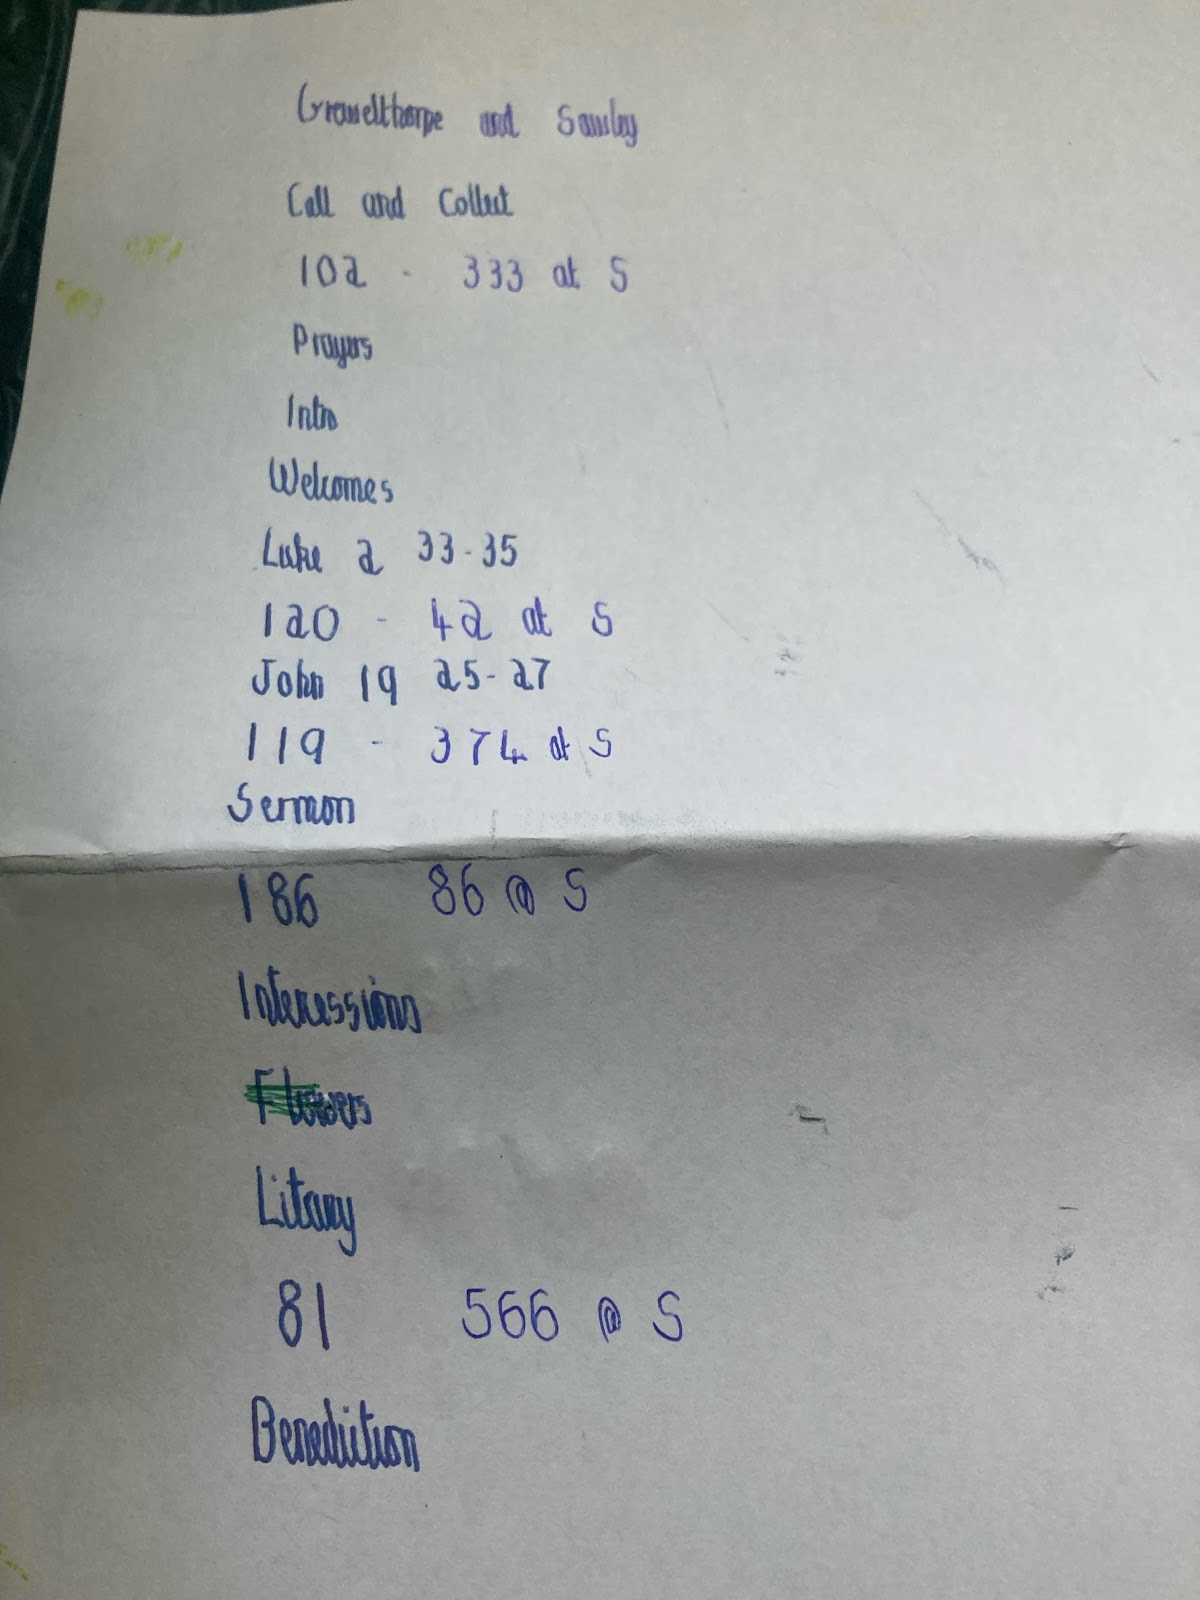 Grewelthorpe and Sawley
Call and Collect
102 - 333 at S
Prayers
Intro
Welcomes
Luke 2 33-35
120 - 42 at S
John 19 25-27
119 - 374 at S
Sermon
186 86 @ S
Intercessions
Flowers
Litany
81 566 @ S
Benediction